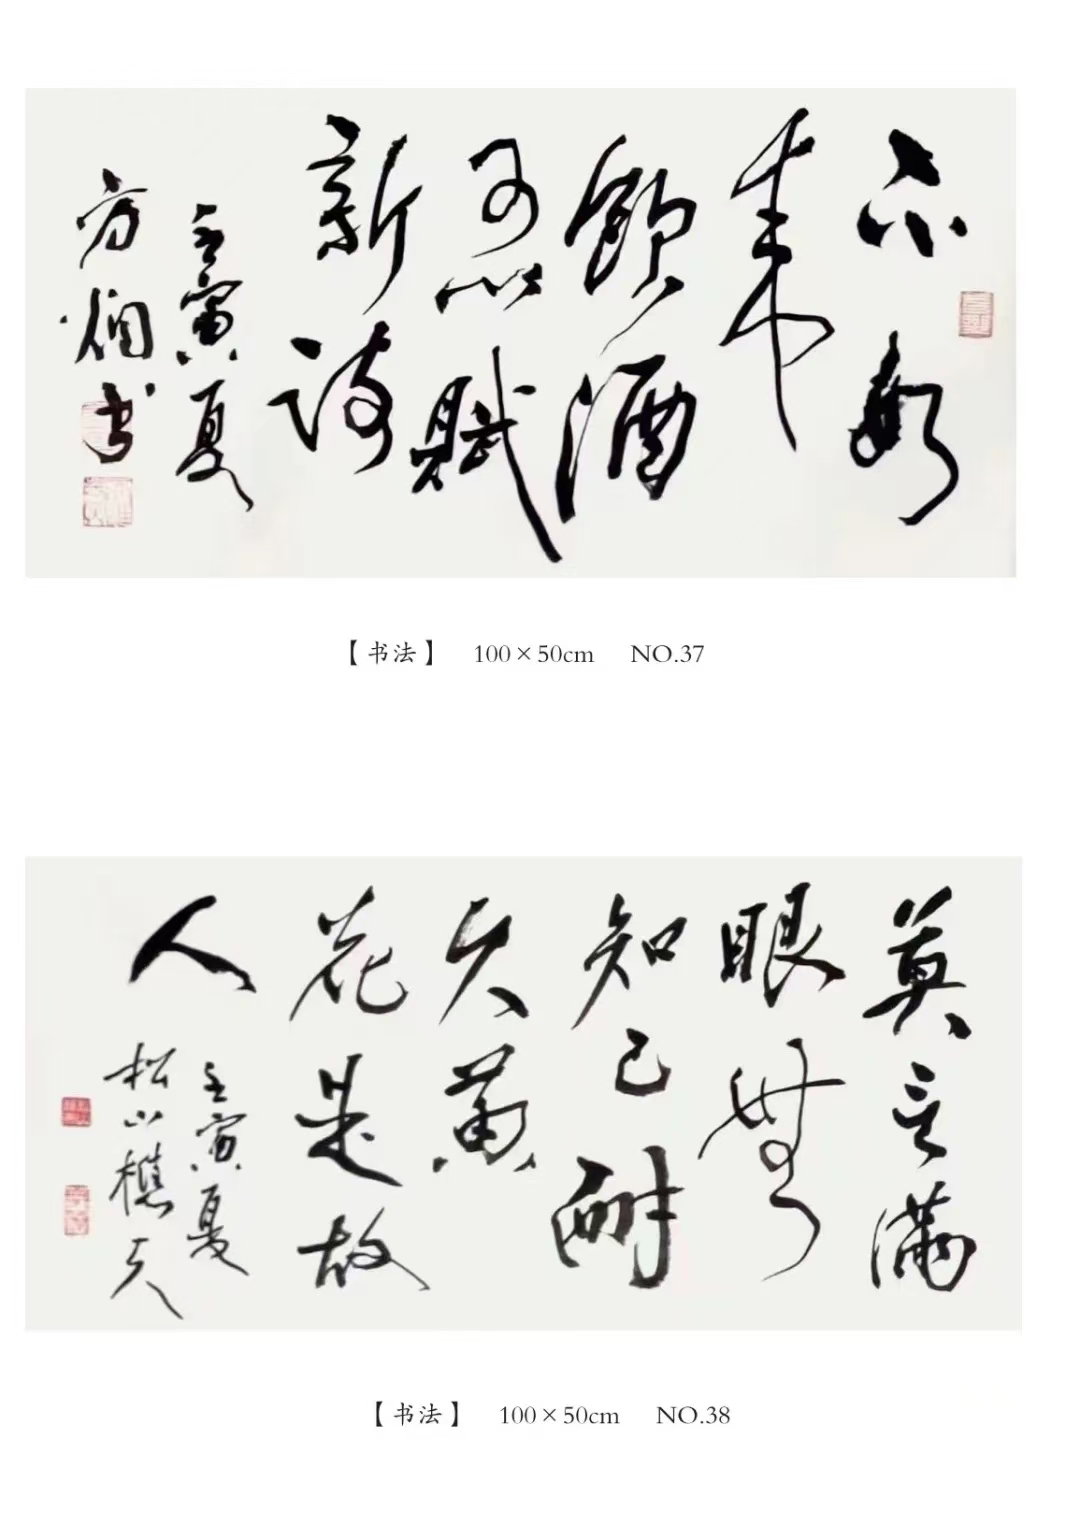 不如
来
飲酒
可以賦
新詩
壬寅夏
方炯书
【书法】 100×50cm NO.37
莫言滿
眼無
知己耐
久黄
花是故
人
壬寅夏
松山樵夫
【书法】 100×50cm NO.38